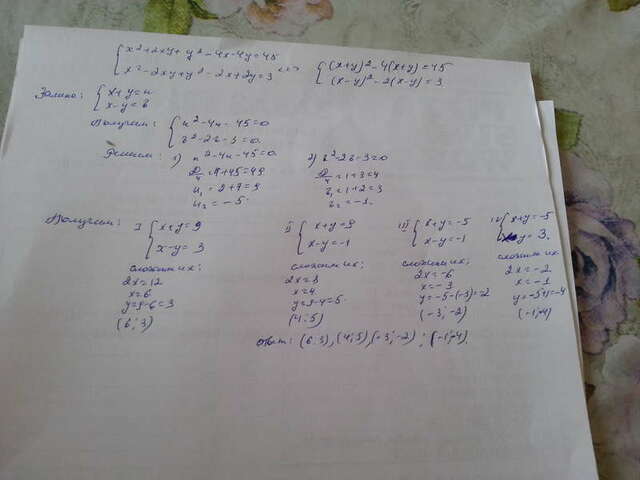 x²+2xy+y²-4x-4y=45
x²-2xy+y²-2x+2y=3 <=> (x+y)²-4(x+y)=45
(x-y)²-2(x-y)=3
Замена: x+y=u
x-y=в
Получим: u²-4u-45=0
в²-2в-3=0.
Решим: 1) u²-4u-45=0
D/4=4+45=49
u₁=2+7=9
u₂=-5.
2) в²-2в-3=0
D/4=1+3=4
в₁=1+2=3
в₂=-1.
Получим: I x+y=9
x-y=3
сложим их:
2x=12
x=6
y=9-6=3
(6;3)
II x+y=9
x-y=-1
сложим их:
2x=8
x=4
y=9-4=5
(4;5)
III x+y=-5
x-y=-1
сложим их:
2x=-6
x=-3
y=-5-(-3)=-2
(-3;-2)
IV x+y=-5
x-y=3.
сложим их
2x=-2
x=-1
y=-5+1=-4
(-1;-4)
Ответ: (6;3),(4;5),(-3;-2);(-1;-4)